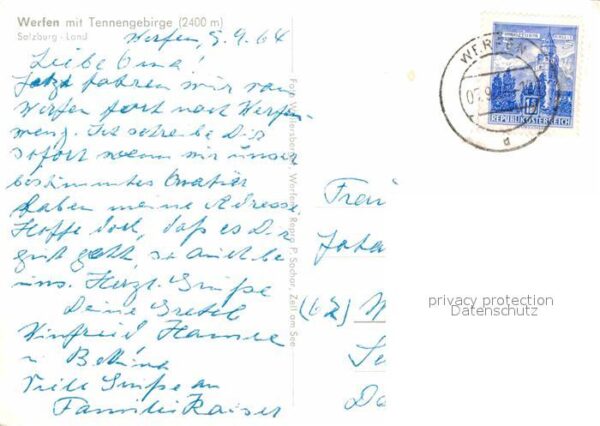 Werfen mit Tennengebirge (2400 m)
Salzburg - Land
Werfen, 5.9.64
Liebe Oma!
Jetzt fahren wir von
Werfen fort nach Werfen-
weng. Ich schreibe Dir
sofort wenn wir unser
bestimmtes Quatier
haben meine Adresse
Hoffe doch, daß es Dir
gut geht, so auch bei
uns. Herzl. Grüße
Deine Gretel
Winfried
u Bettina
Viele Grüße an
Familie Kaiser
Zell am See
WERFEN
REPUBLIK ÖSTERREICH
Frau
Joha
(62) W
Se
Da
privacy protection
Datenschutz